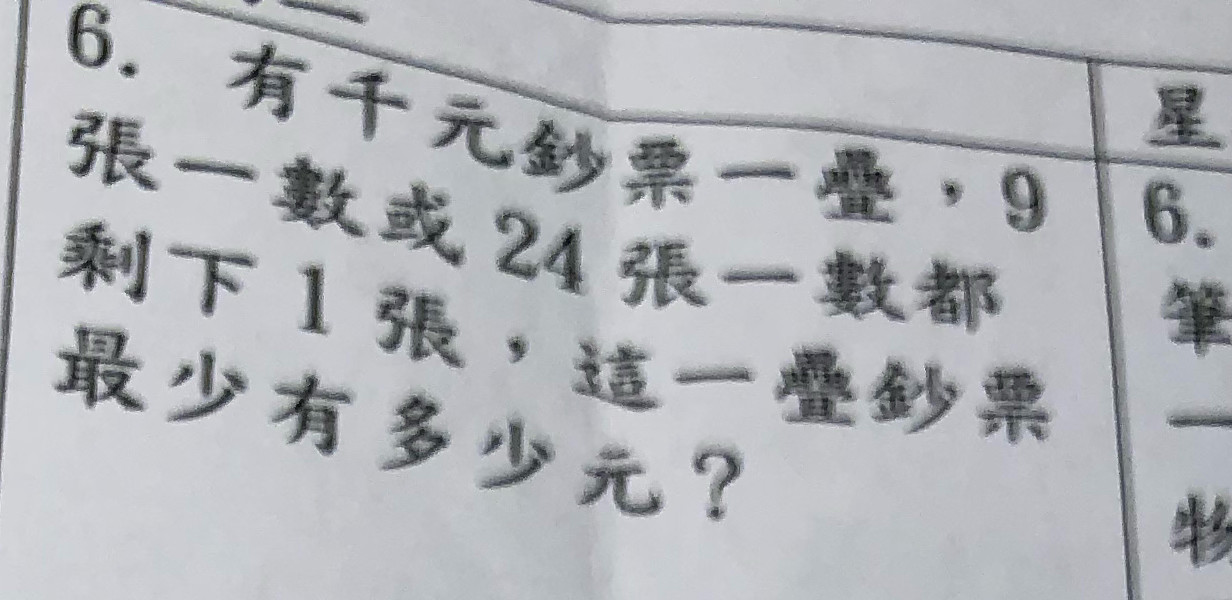 6. 有千元鈔票一疊，9
張一數或 24 張一數都
剩下 1 張，這一疊鈔票
最少有多少元？
星
6.
筆
一
物